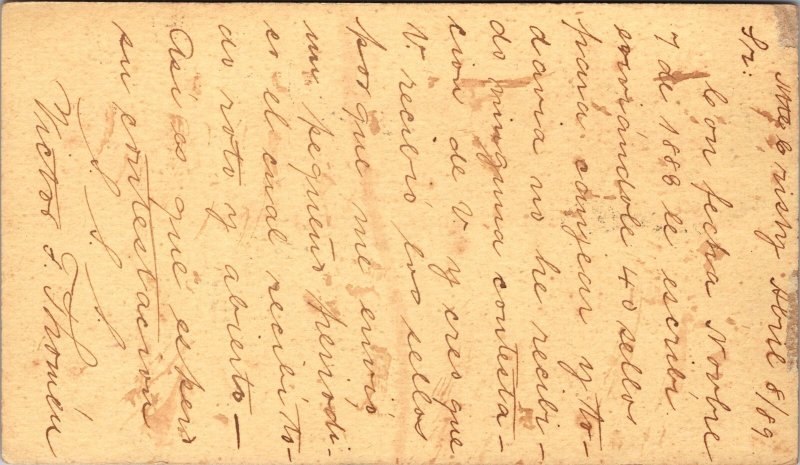 Abril 8/89
Sr.
Con fecha Novbre
7 de 1888 le escribí
enviándole 40 sellos
para canjear y to-
davia no he recibi-
do ninguna contesta-
cion de V. y creo que
V. recibió los sellos
porque me envió
un pequeño periodi-
co el cual recibi to-
do roto y abierto—
Así es que espero
su contestacion
S. S. S.
Victor F. Thomén